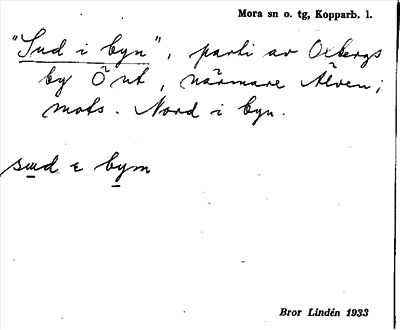 Mora sn o. tg, Kopparb. l.
"Sud i byn", parti av Oxbergs
by Ö ut, närmare Älven;
mots. Nord i byn.
sɯd ε bym
Bror Lindén 1933